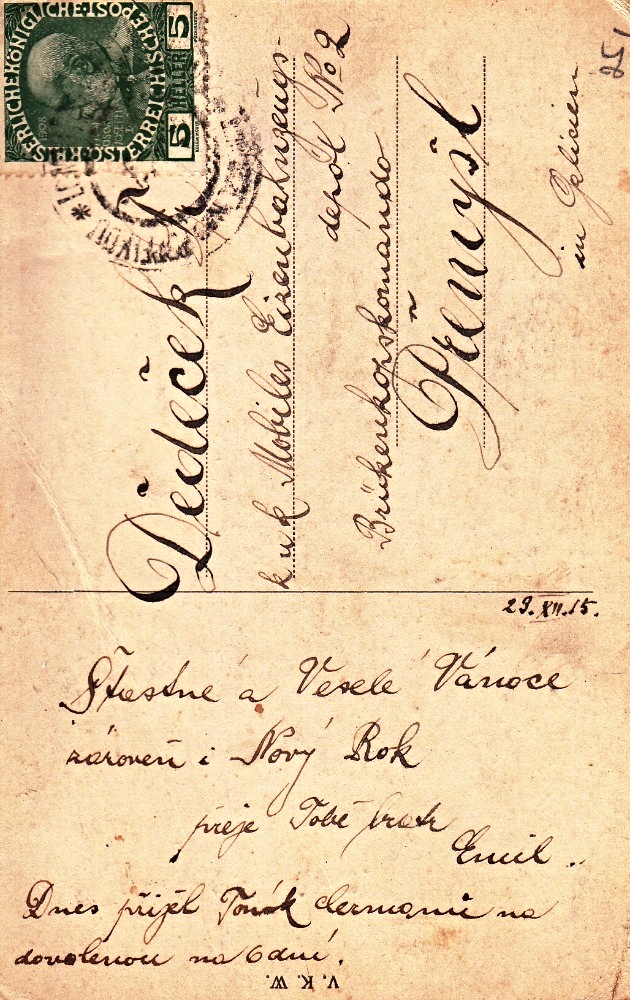 KAISERLICHE·KÖNIGLICHE·ÖSTERREICHISCHE·POST
5 HELLER 5
251
Dědeček
k u k Mobiles Eizenbahnzeugs-
depôt No 2
Brükenkopskomándo
Přemyšl
in Galicien
29. XII. 15.
Šťastné a Veselé Vánoce
zároveň i Nový Rok
přeje Tobě bratr
Emil
Dnes přijel Toník na
dovolenou na 6 dní.
V. K. W.